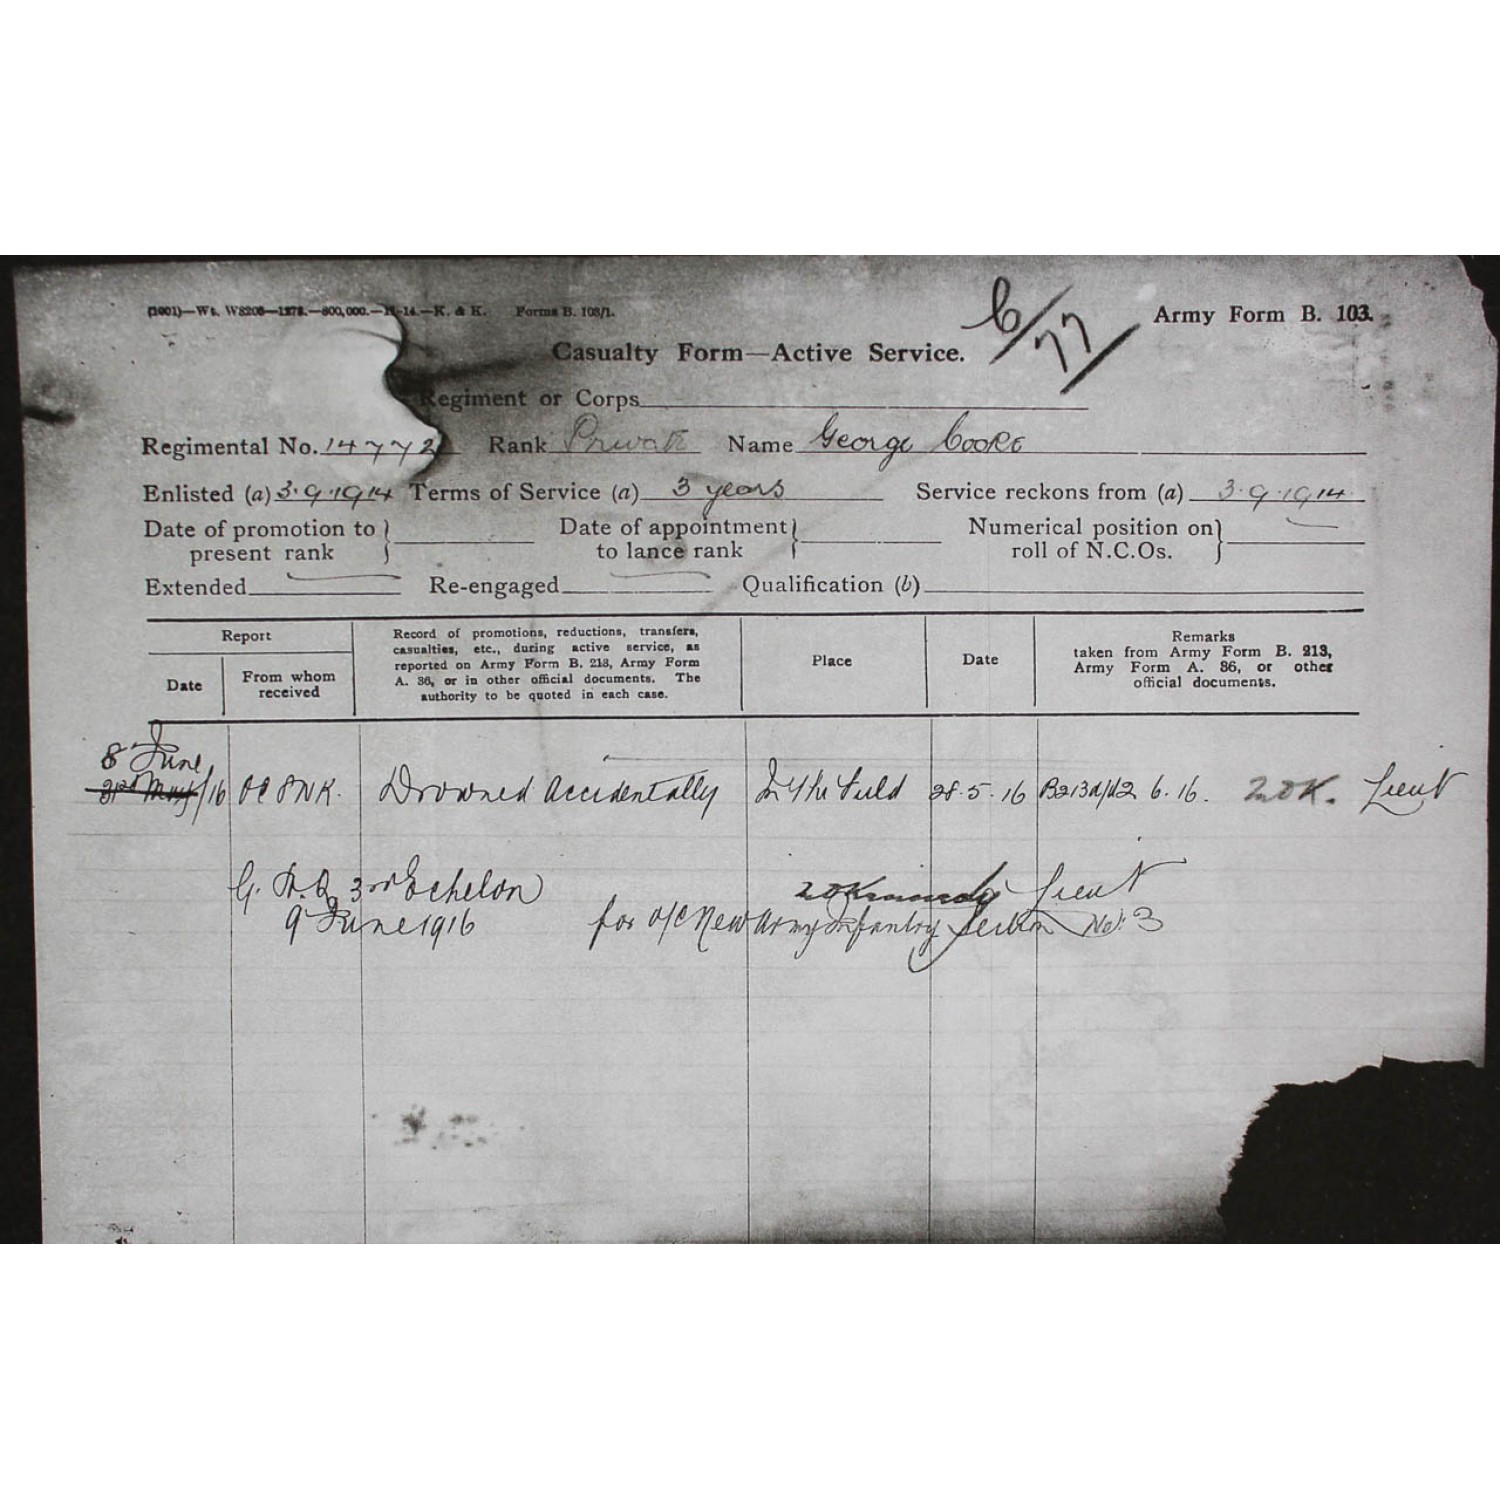 (1001)—Wt. W8206—1272.—800,000.—11-14.—K. & K. Forms B. 103/1.
6/77
Army Form B. 103.
Casualty Form—Active Service.
Regiment or Corps
Regimental No. 14772 Rank Private Name George Cooke
Enlisted (a) 3.9.1914 Terms of Service (a) 3 years Service reckons from (a) 3.9.1914
Date of promotion to present rank Date of appointment to lance rank Numerical position on roll of N.C.Os.
Extended Re-engaged Qualification (b)
Report
Date
From whom received
Record of promotions, reductions, transfers,
casualties, etc., during active service, as
reported on Army Form B. 213, Army Form
A. 36, or in other official documents. The
authority to be quoted in each case.
Place
Date
Remarks
taken from Army Form B. 213,
Army Form A. 36, or other
official documents.
8 June
/16 OC 8 NK. Drowned Accidentally In the Field 28.5.16 B213 6.16. Lieut
G.H.Q. 3rd Echelon Lieut
9 June 1916 for O/C New Army Infantry Section No. 3